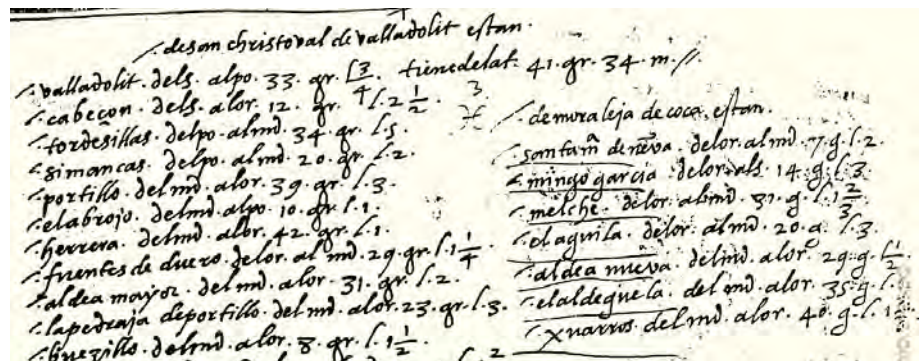 desan christoval de valladolit estan.
valladolit. dels. alpo. 33. gr. l 3/4. tienedelat. 41. gr. 34. m.
cabeçon. dels. alor. 12. gr. l. 2 1/2.
tordesillas. delpo. almd. 34. gr. l. 5.
simancas. delpo. almd. 20. gr. l. 2.
portillo. del md. alor. 39. gr. l. 3.
elabrojo. delmd. alpo. 10. gr. l. 1.
herrera. delmd. alor. 42. gr. l. 1.
fuentes de duero. delor. al md. 29. gr. l. 1 1/4
aldea mayor. del md. alor. 31. gr. l. 2.
lapedraja deportillo. del md. alor. 23. gr. l. 3.
delmd. alor. 8. gr. l. 1 1/2.
demoraleja de coca. estan.
santa m̃ de neva. delor. al md. 7. g. l. 2.
mingo garcia. delor. als. 14. g. l. 3.
melche. delor. almd. 31. g. l. 1 2/3
el aguila. delor. almd. 20. g. l. 3.
aldea nueva. delmd. alor. 29. g. l. 1/2
elaldeguela. del md. alor. 35. g. l. 1.
xuarros. del md. alor. 40. g. l. 1